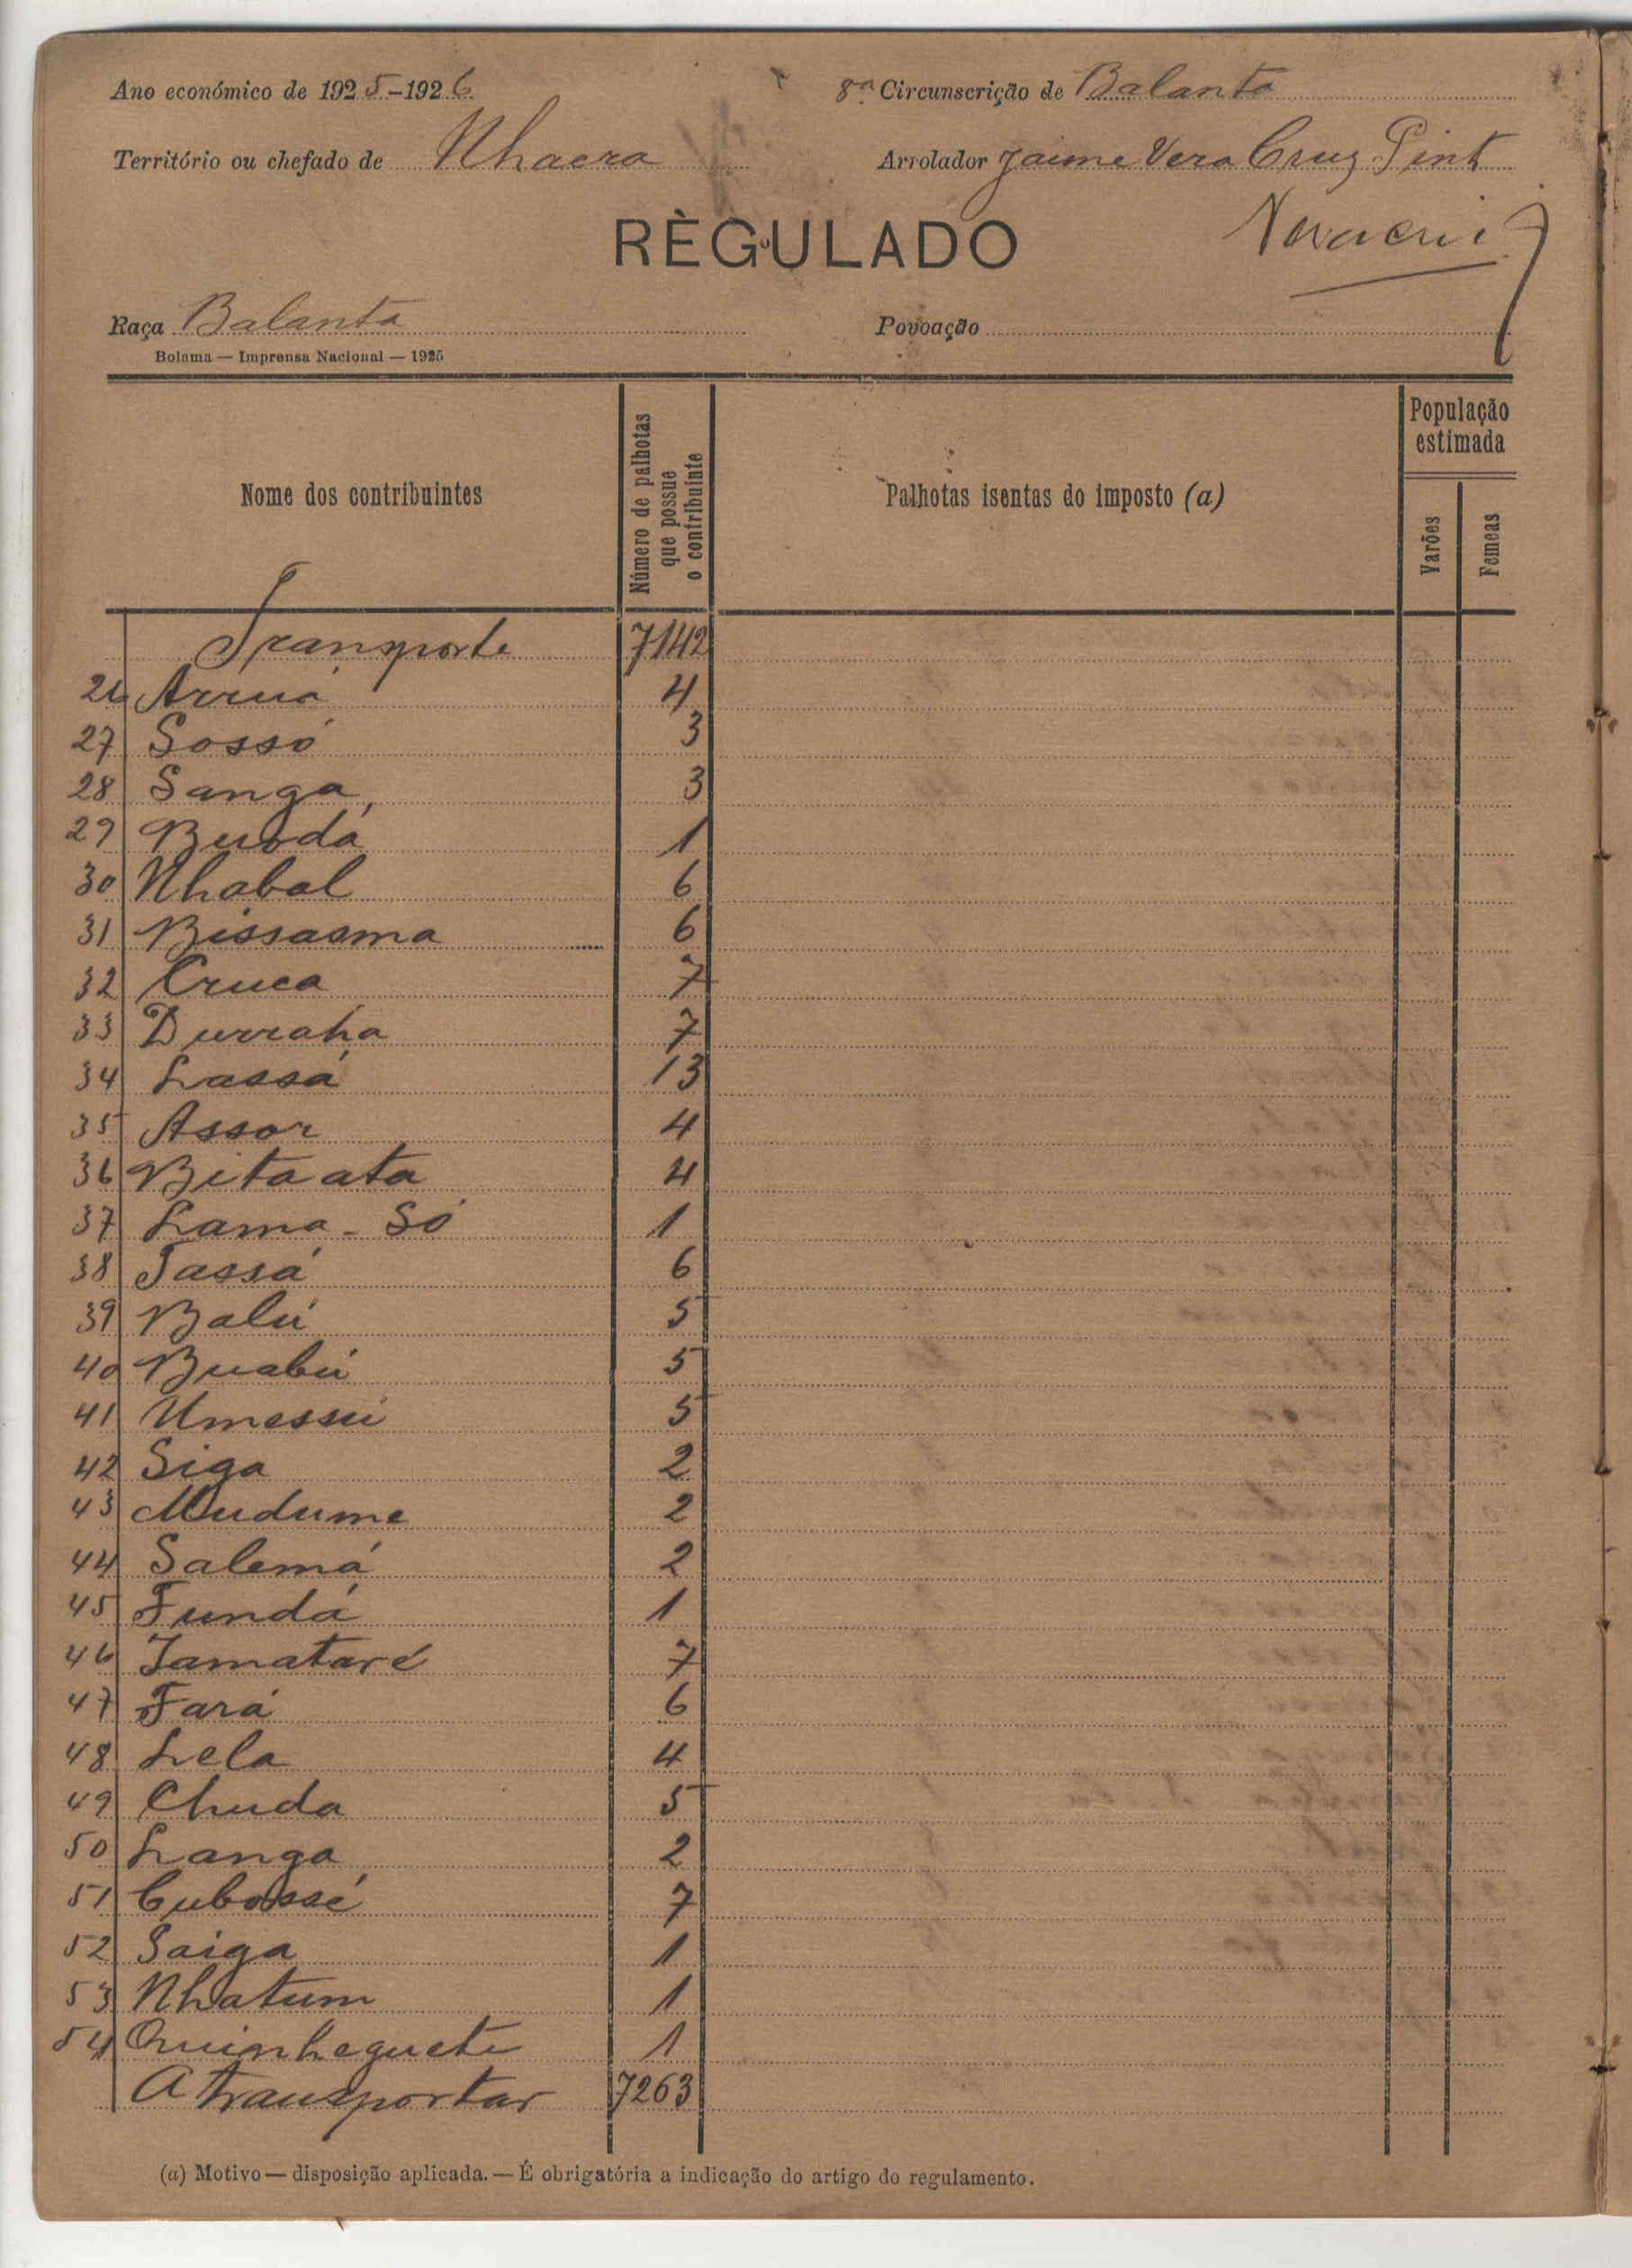 Ano económico de 1925-1926. 8ª Circunscrição de Balanta
Território ou chefado de Nhacra Arrolador Jaime Vera Cruz Pint
RÈGULADO
Raça Balanta Povoação
Bolama — Imprensa Nacional — 1925
Nome dos contribuintes Número de palhotas que possue o contribuinte Palhotas isentas do imposto (a) População estimada Varões Femeas
Transporte 7142
26 Arruá 4
27 Sossó 3
28 Sanga 3
29 Buodá 1
30 Nhabal 6
31 Bissasma 6
32 Cruca 7
33 Durraha 7
34 Lassá 13
35 Assor 4
36 Bitaata 4
37 Lama - Só 1
38 Tassá 6
39 Balú 5
40 Buabú 5
41 Umessú 5
42 Siga 2
43 Mudume 2
44 Salemá 2
45 Fundá 1
46 Jamataré 7
47 Fará 6
48 Lela 4
49 Chuda 5
50 Langa 2
51 Cubossé 7
52 Saiga 1
53 Nhatum 1
54 Quinheguete 1
A transportar 7263
(a) Motivo — disposição aplicada. — É obrigatória a indicação do artigo do regulamento.